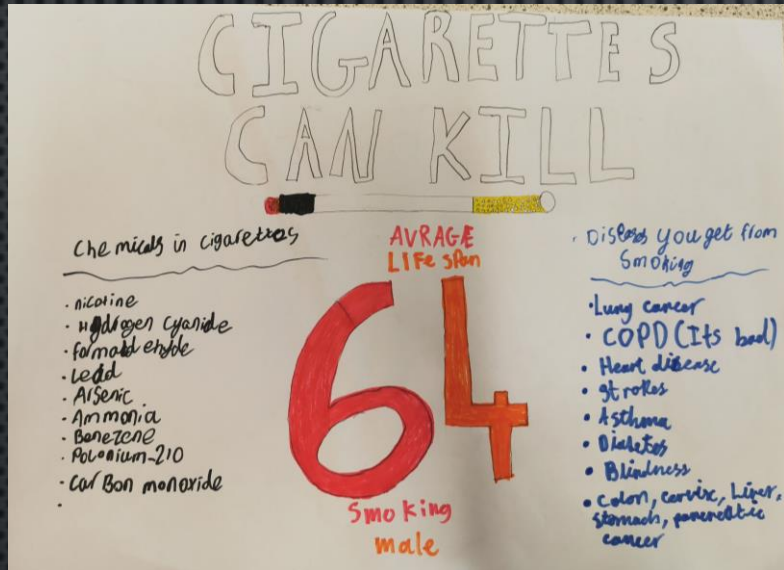 CIGARETTES
CAN KILL
Chemicals in cigarettes
• nicotine
• Hydrogen cyanide
• formaldehyde
• Lead
• Arsenic
• Ammonia
• Benezene
• Polonium-210
• Carbon monoxide
•
AVRAGE
LIFe sPan
64
Smoking
male
• Diseses you get from
Smoking
• Lung cancer
• COPD (Its bad)
• Heart disease
• strokes
• Asthma
• Diabetes
• Blindness
• Colon, cervix, Liver,
stomach, pancreatic
cancer